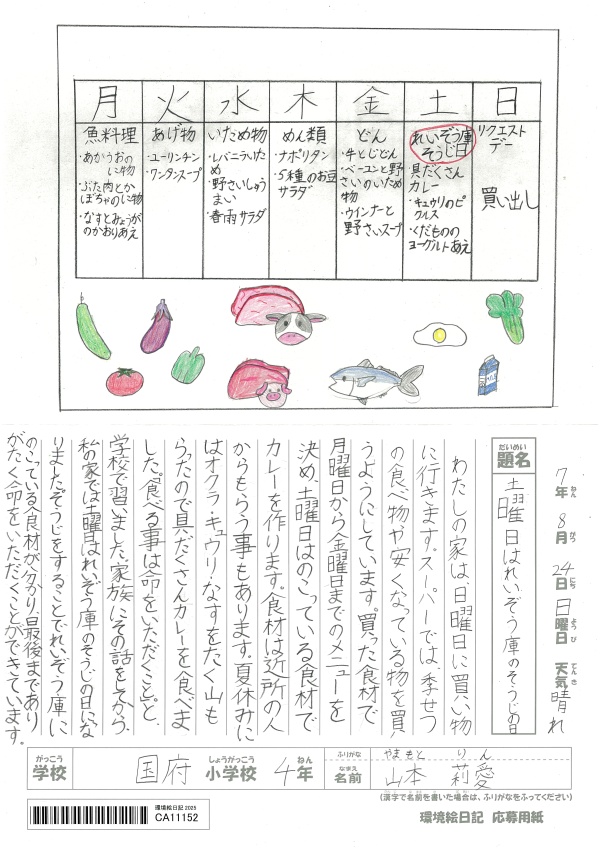 月 火 水 木 金 土 日
魚料理
・あかうおのに物
・ぶた肉とかぼちゃのに物
・なすとみょうがのかおりあえ
あげ物
・ユーリンチン
・ワンタンスープ
いため物
・レバニラいため
・野さいしゅうまい
・春雨サラダ
めん類
・ナポリタン
・5種のお豆サラダ
どん
・牛とじどん
・ベーコンと野さいのいため物
・ウインナーと野さいスープ
れいぞう庫そうじ日
具だくさんカレー
・キュウリのピクルス
・くだもののヨーグルトあえ
リクエストデー
買い出し
7年 8月 24日 日曜日 天気 晴れ
ねん がつ にち ようび てんき
だいめい
題名
土曜日はれいぞう庫のそうじの日
わたしの家は、日曜日に買い物
に行きます。スーパーでは、季せつ
の食べ物や安くなっている物を買
うようにしています。買った食材で
月曜日から金曜日までのメニューを
決め、土曜日はのこっている食材で
カレーを作ります。食材は近所の人
からもらう事もあります。夏休みに
はオクラ・キュウリ・なすをたく山も
らったので具だくさんカレーを食べま
した。「食べる事は命をいただくこと。」と、
学校で習いました。家族にその話をしてから、
私の家では土曜日はれいぞう庫のそうじの日にな
りました。そうじをすることでれいぞう庫に
のこっている食材が分かり、最後まであり
がたく命をいただくことができています。
がっこう しょうがっこう ねん ふりがな やまもと りん
学校 国府 小学校 4年 なまえ 名前 山本 莉愛
(漢字で名前を書いた場合は、ふりがなをふってください)
環境絵日記 2025
CA11152
環境絵日記 応募用紙